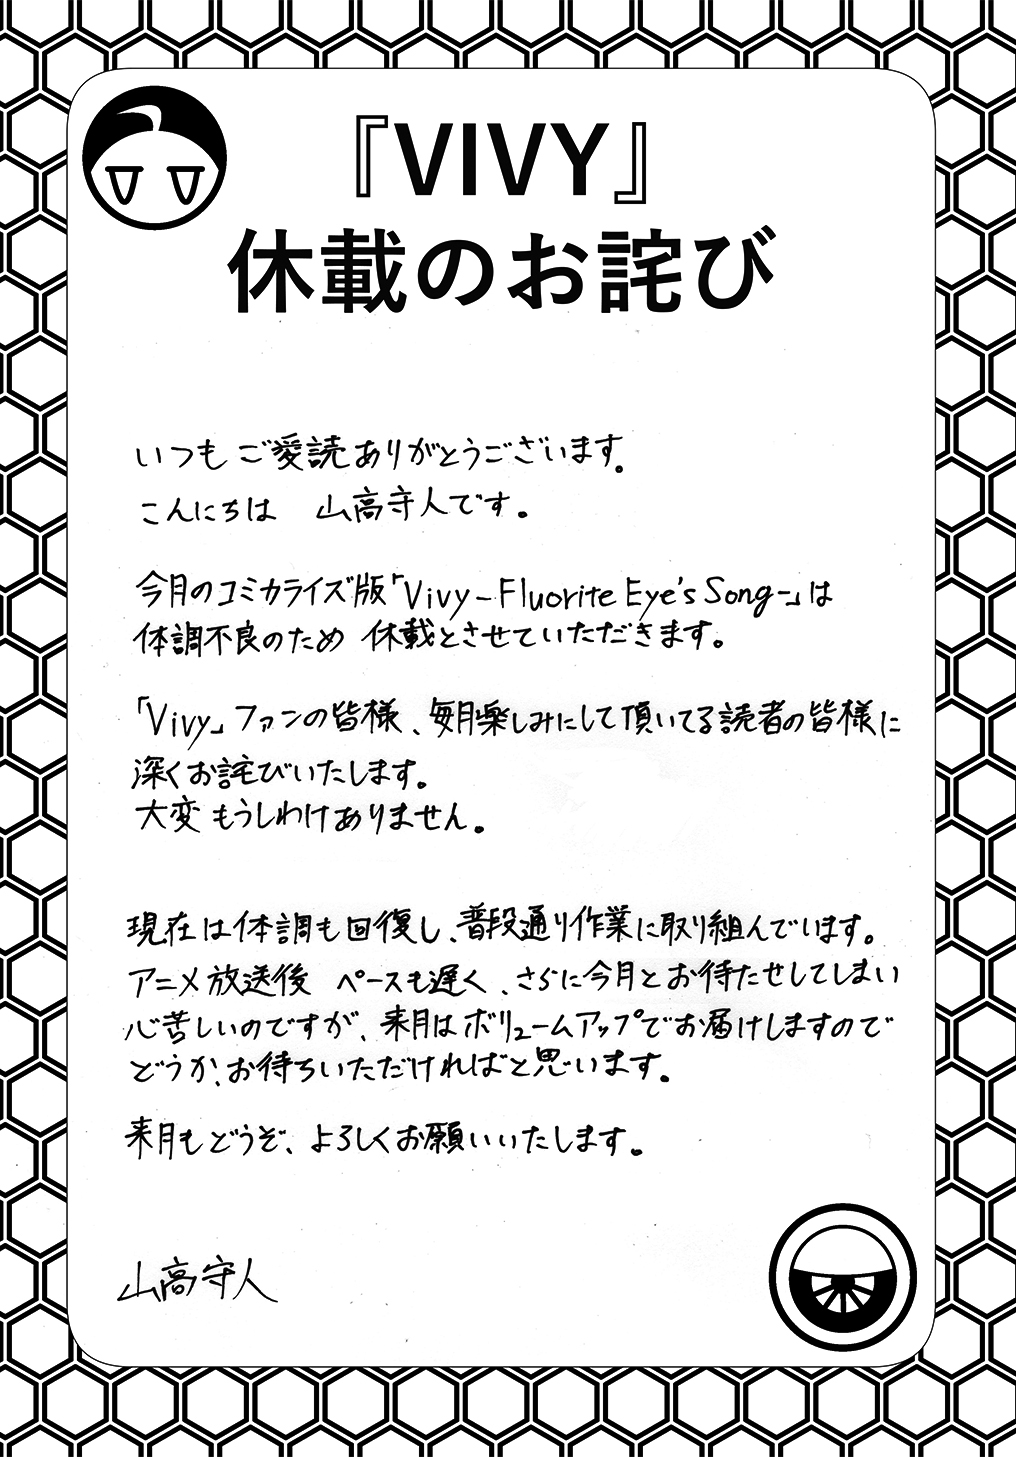 『VIVY』
休載のお詫び
いつもご愛読ありがとうございます。
こんにちは 山高守人です。
今月のコミカライズ版「Vivy-Fluorite Eye's Song-」は
体調不良のため 休載とさせていただきます。
「Vivy」ファンの皆様、毎月楽しみにして頂いてる読者の皆様に
深くお詫びいたします。
大変もうしわけありません。
現在は体調も回復し、普段通り作業に取り組んでいます。
アニメ放送後 ペースも遅く、さらに今月とお待たせしてしまい
心苦しいのですが、来月はボリュームアップでお届けしますので
どうか、お待ちいただければと思います。
来月もどうぞ、よろしくお願いいたします。
山高守人